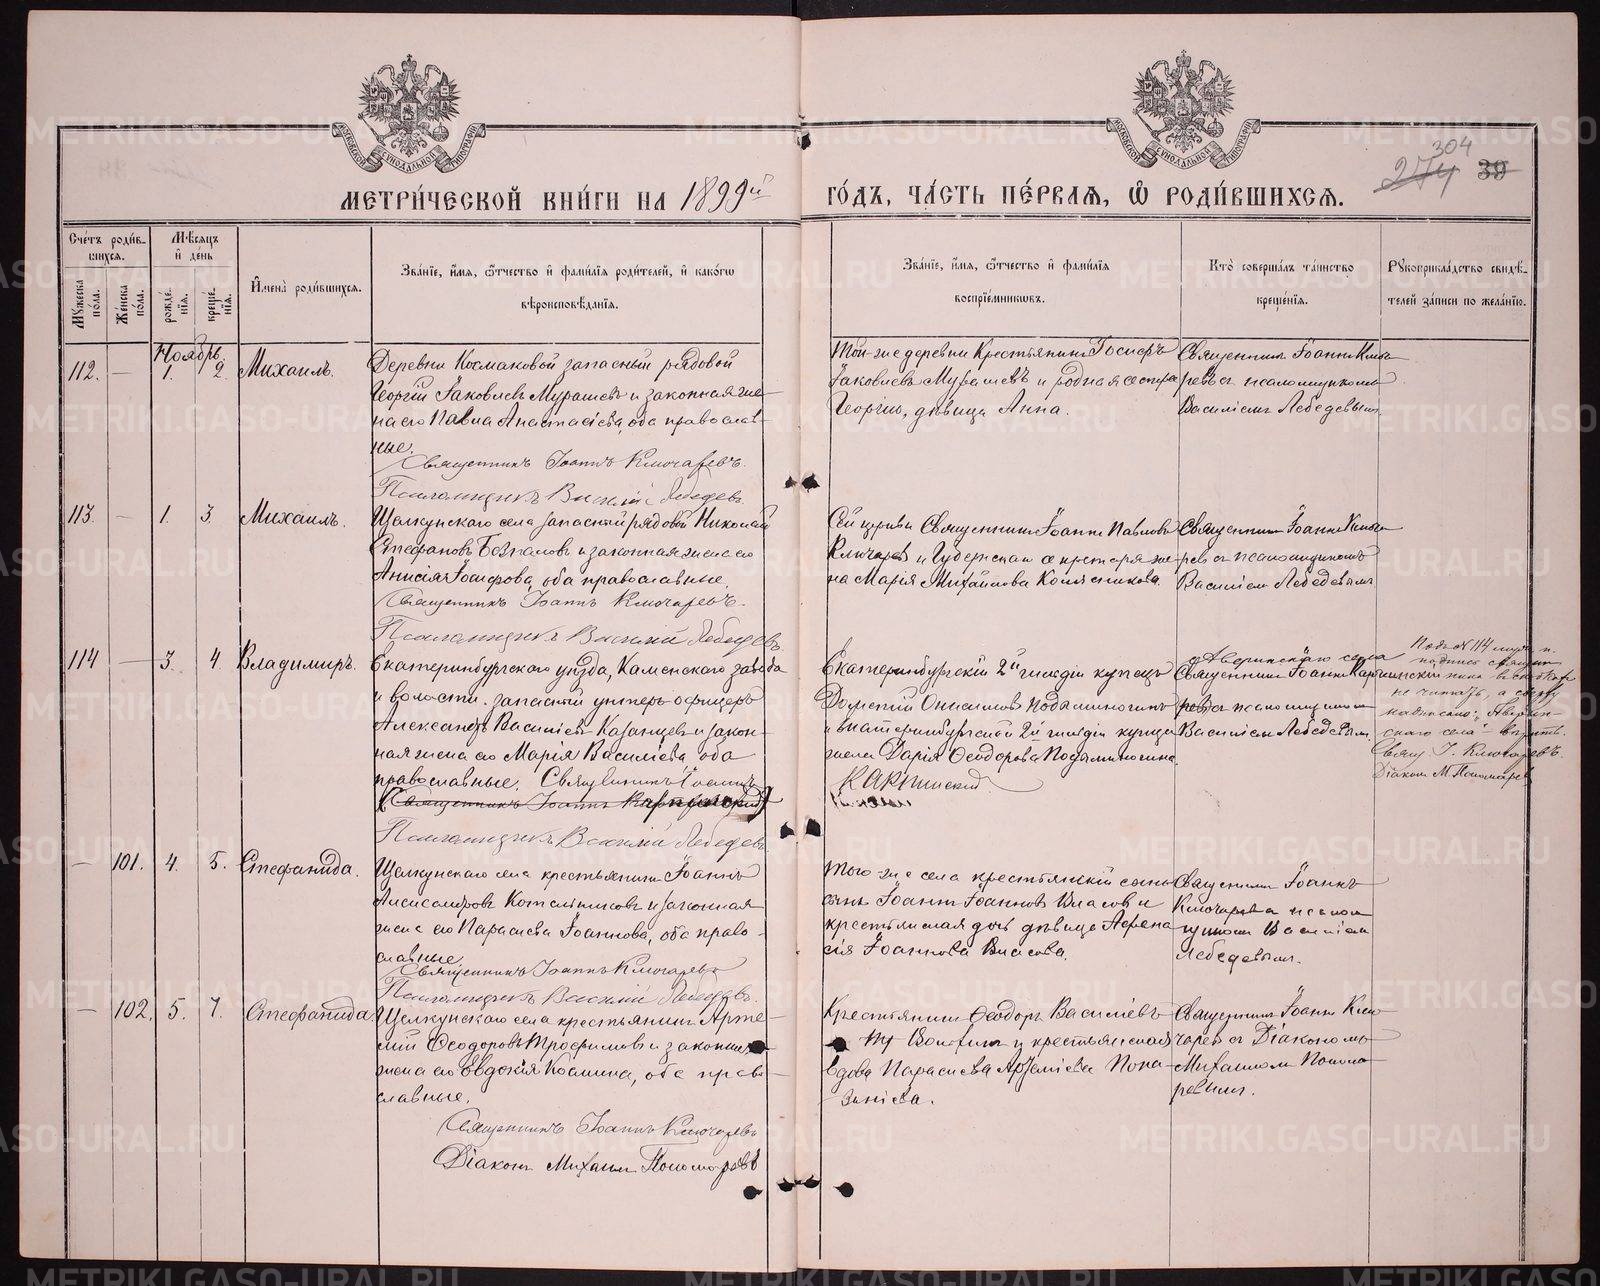 МЕТРИ́ЧЕСКОЙ КНИ́ГИ НА 1899й
ГО́ДЪ, ЧА́СТЬ ПЕ́РВАЯ, Ѽ РОДИ́ВШИХСЯ.
304
274 39
Сче́тъ роди́в-
шихся.
Му́жеска по́ла.
Же́нска по́ла.
Мѣ́сяцъ и҆ де́нь
рожде́нїя.
креще́нїя.
И҆мена̀ роди́вшихся.
Зва́нїе, и҆́мя, ѻ҆́тчество и҆ фами́лїя роди́телей, и҆ како́гѡ
вѣроисповѣ́данїя.
Зва́нїе, и҆́мя, ѻ҆́тчество и҆ фами́лїя
воспрїе́мникѡвъ.
Кто̀ соверша́лъ та́инство
креще́нїя.
Рꙋкоприкла́дство свидѣ́-
телей за́писи по жела́нїю.
Ноябрь.
112. — 1. 2. Михаилъ.
Деревни Космаковой запасный рядовой
Георгій Іаковлевъ Мурашевъ и законная же-
на его Павла Анастасіева, оба православ-
ные.
Священникъ Іоаннъ Ключаревъ.
Псаломщикъ Василій Лебедевъ
Той-же деревни Крестьянинъ Іосифъ
Іаковлевъ Мурашевъ и родная сестра
Георгію, дѣвица Анна.
Священникъ Іоаннъ Ключа-
ревъ съ псаломщикомъ
Василіемъ Лебедевымъ
113. — 1. 3. Михаилъ.
Щелкунскаго села запасный рядовой Николай
Стефановъ Безпаловъ и законная жена его
Анисія Іосифова, оба православные.
Священникъ Іоаннъ Ключаревъ.
Псаломщикъ Василій Лебедевъ
Сей церкви Священникъ Іоаннъ Павловъ
Ключаревъ и Губернскаго секретаря же-
на Марія Михайлова Колясникова.
Священникъ Іоаннъ Ключа-
ревъ съ псаломщикомъ
Василіемъ Лебедевымъ
114 — 3. 4. Владимиръ.
Екатеринбургскаго уѣзда, Каменскаго завода
и волости, запасный унтеръ-офицеръ
Александръ Василіевъ Казанцевъ и закон-
ная жена его Марія Василіева, оба
православные. Священникъ Іоаннъ
(Священникъ Іоаннъ
Псаломщикъ Василій Лебедевъ
Екатеринбургскій 2й гильдіи купецъ
Дометій Онисимовъ Подвминогинъ
и екатеринбургской 2й гильдіи купца
жена Дарія Ѳеодорова
Карпинскій
Аверинскаго села
Священникъ Іоаннъ Карпинскій
ревъ съ псаломщикомъ
Василіемъ Лебедевымъ.
Подъ № 114
подпись священ
не читать, а сверху
надписано: „Аверин-
скаго села“ — вѣрить.
Свящ. І. Ключаревъ.
Діаконъ М. Пономаревъ
— 101. 4. 5. Стефанида.
Щелкунскаго села крестьянинъ Іоаннъ
Александровъ Котельниковъ и законная
жена его Параскева Іоаннова, оба право-
славные.
Священникъ Іоаннъ Ключаревъ
Псаломщикъ Василій Лебедевъ.
Того-же села крестьянскій сынъ
Іоаннъ Іоанновъ Власовъ и
крестьянская дочь дѣвица Афана-
сія Іоаннова Власова.
Священникъ Іоаннъ
Ключаревъ съ псалом-
щикомъ Василіемъ
Лебедевымъ.
— 102. 5. 7. Стефанида
Щелкунскаго села крестьянинъ Арте-
мій Ѳеодоровъ Трофимовъ и законная
жена его Евдокія Козмина, оба право-
славные.
Священникъ Іоаннъ Ключаревъ
Діаконъ Михаилъ Пономаревъ
Крестьянинъ Ѳеодоръ Василіевъ
и крестьянская
вдова Параскева Артеміева
Священникъ Іоаннъ Клю-
чаревъ съ Діакономъ
Михаиломъ Понома-
ревымъ.
METRIKI.GASO-URAL.RU